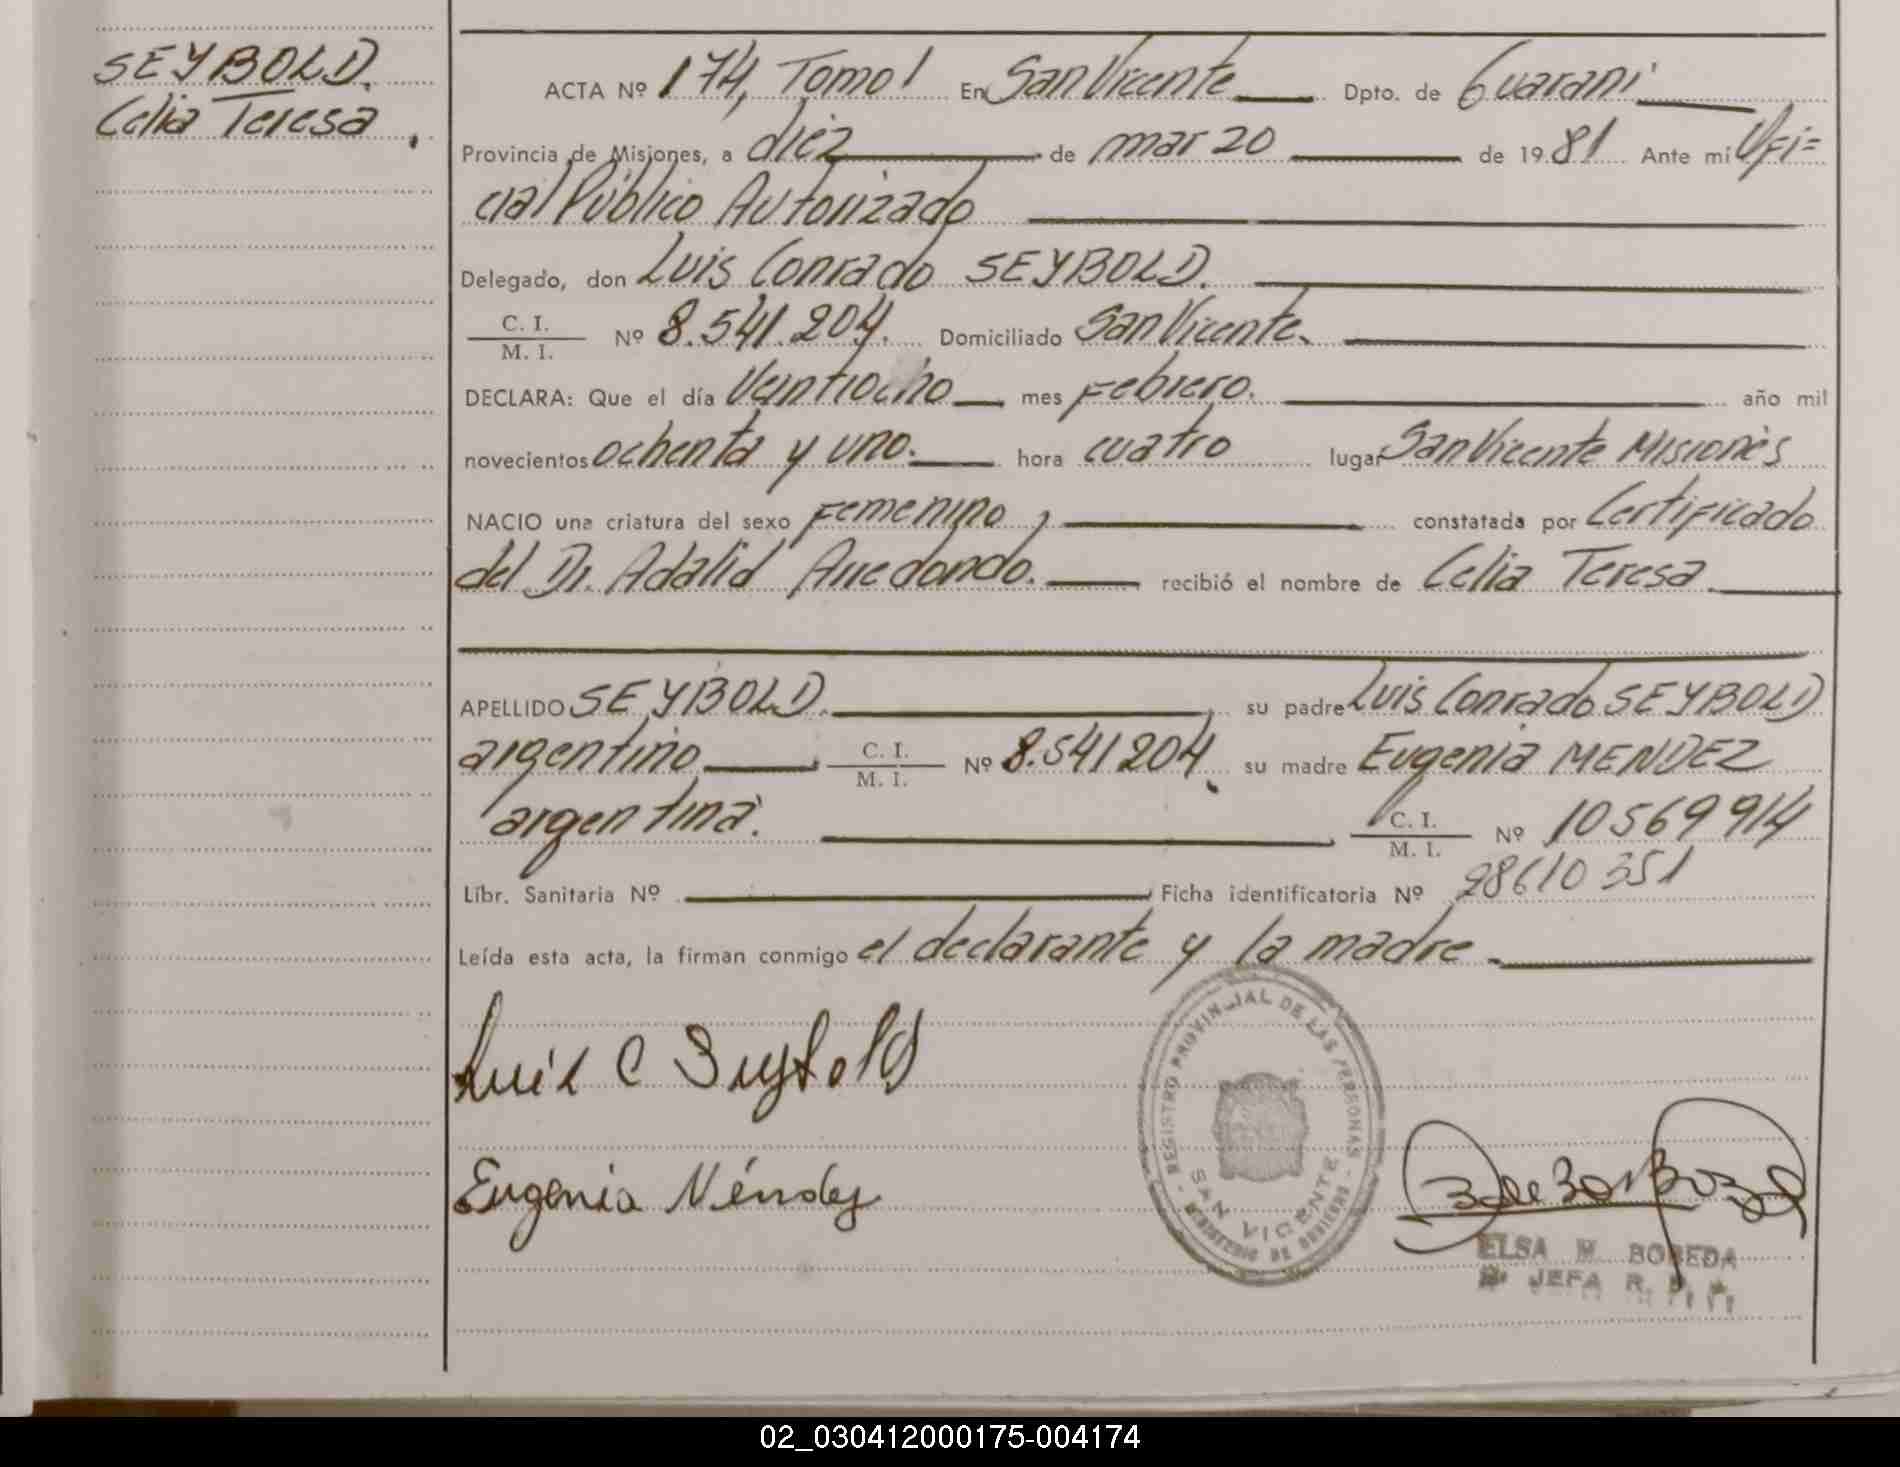 SEYBOLD.
Celia Teresa.
ACTA Nº 174, Tomo 1 En San Vicente Dpto. de Guaraní
Provincia de Misiones, a diez de marzo de 1981 Ante mí Ofi=
cial Público Autorizado
Delegado, don Luis Conrado SEYBOLD.
C. I.
M. I.
Nº 8.541.204. Domiciliado San Vicente.
DECLARA: Que el día Veintiocho mes Febrero. año mil
novecientos ochenta y uno. hora cuatro lugar San Vicente Misiones
NACIO una criatura del sexo Femenino, constatada por Certificado
del Dr. Adalid Arredondo. recibió el nombre de Celia Teresa
APELLIDO SEYBOLD. su padre Luis Conrado SEYBOLD
argentino C. I. Nº 8.541204. su madre Eugenia MENDEZ
M. I.
argentina. C. I. Nº 10569914
M. I.
Libr. Sanitaria Nº Ficha identificatoria Nº 28610351
Leída esta acta, la firman conmigo el declarante y la madre.
Luis C Seybold
Eugenia Méndez
REGISTRO PROVINCIAL DE LAS PERSONAS
SAN VICENTE
MINISTERIO DE GOBIERNO
ELSA M. BOBEDA
JEFA R.
02_030412000175-004174